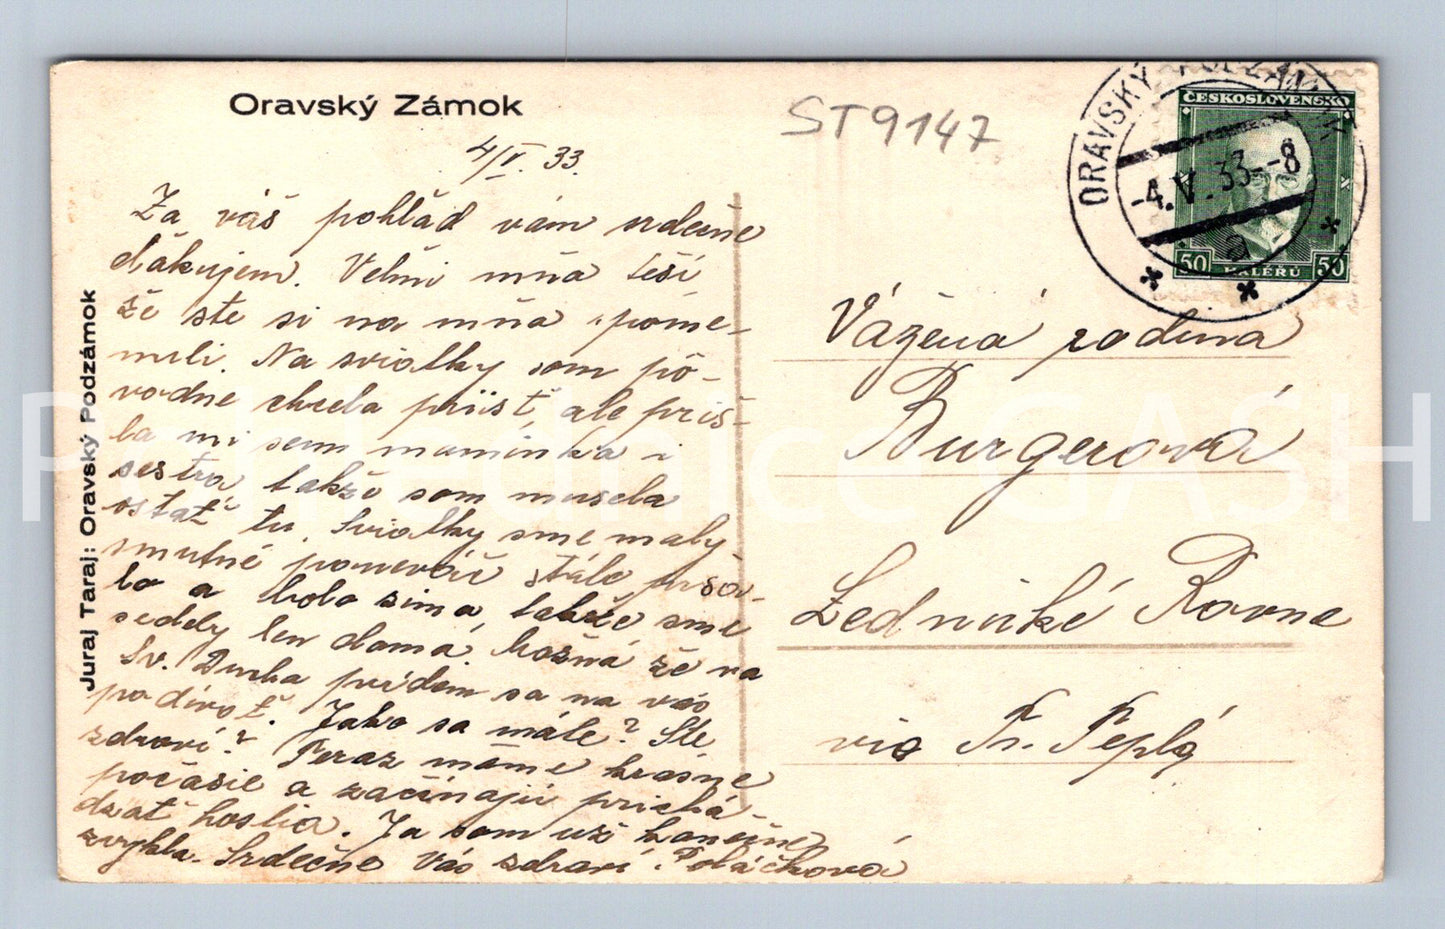 Oravský Zámok
ST9147
4/V. 33.
ORAVSKÝ PODZÁMOK
-4.V.33.-8
a
ČESKOSLOVENSKO
50 HALÉŘŮ 50
Juraj Taraj: Oravský Podzámok
Za váš pohľad vám srdečne
ďakujem. Veľmi mňa teší
že ste si na mňa pome-
nuli. Na sviatky som pô-
vodne chcela prijsť, ale priš-
la mi sem maminka i
sestra takže som musela
ostať tu. Sviatky sme maly
smutné poneváč stále prša-
lo a bolo zima, takže sme
sedely len doma. Možná že na
Sv. Ducha prídem sa na vás
podívať. Jako sa máte? Ste
zdraví? Teraz máme krásne
počasie a začínajú prichá-
dzať hostia. Ja som už konečne
zvykla. Srdečne Vás zdraví Poláčková
Vážená rodina
Burgerová
Lednické Rovne
via Tr. Teplá
Pohľadnice GASH